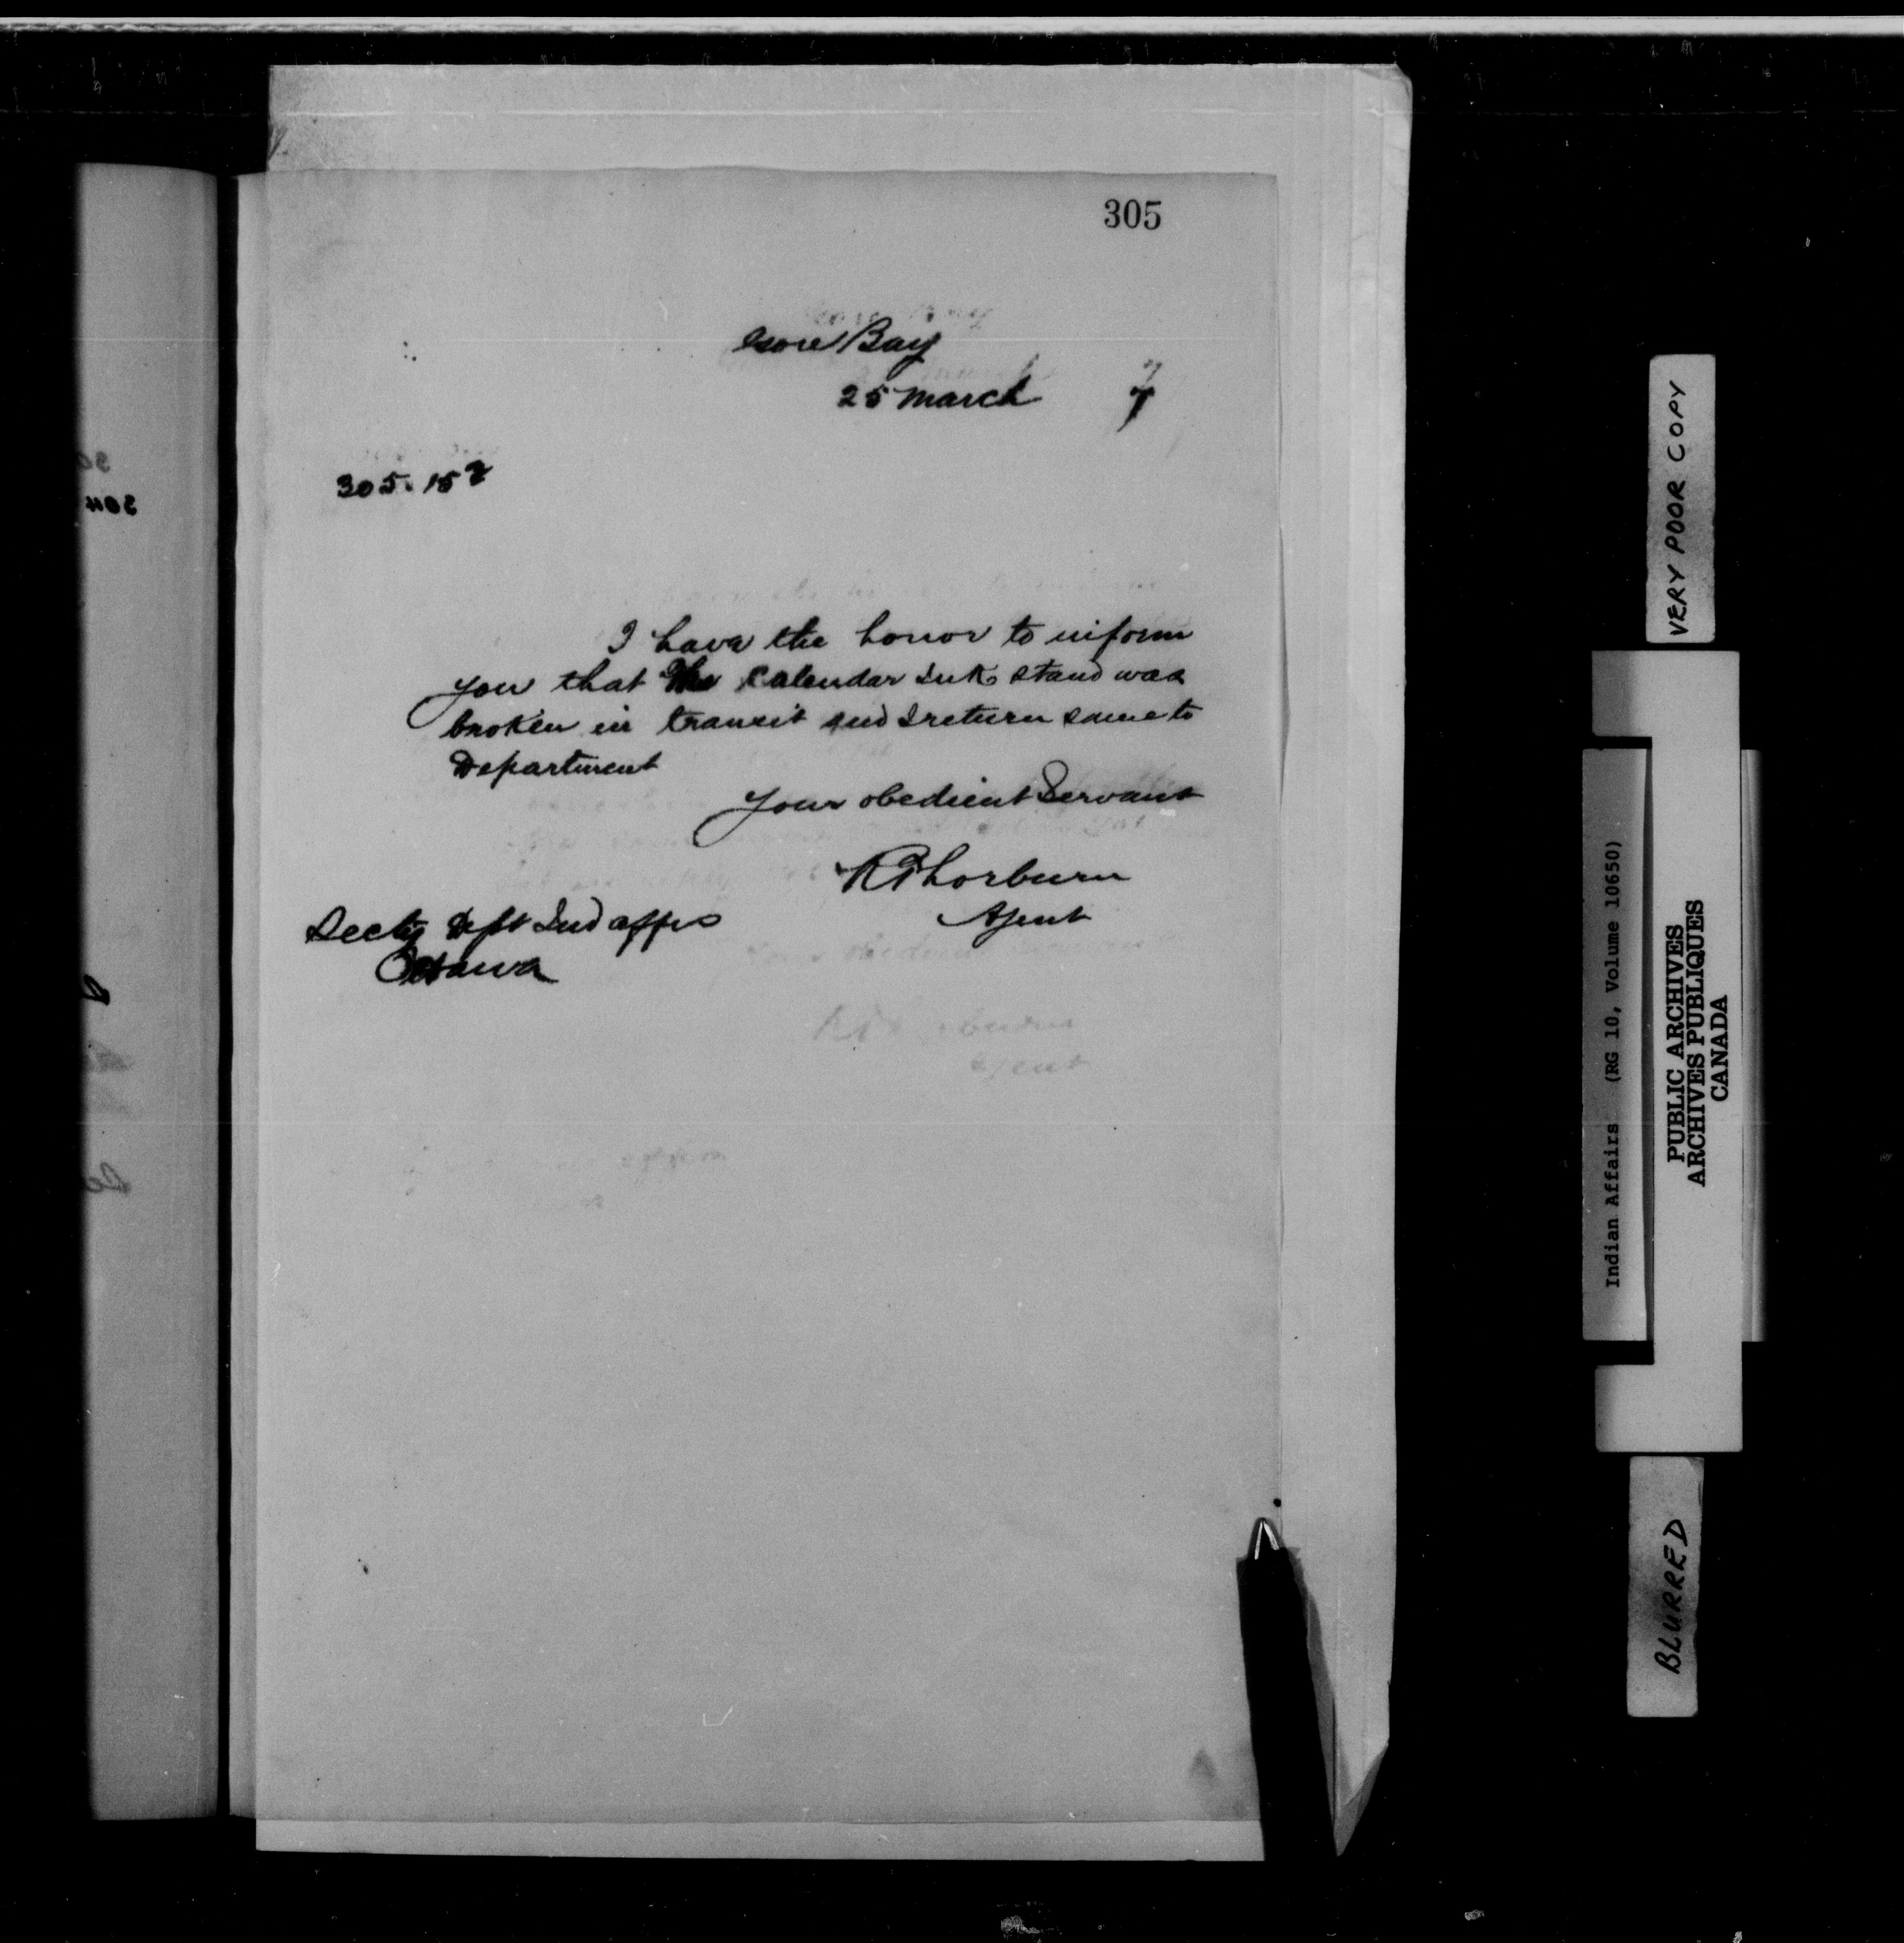 305
Gore Bay
25 March 7
305.152
I have the honor to inform
you that the Calendar Ink stand was
broken in transit and I return same to
Department
Your obedient Servant
R Thorburn
Agent
Secty Dept Ind Affrs
Ottawa
VERY POOR COPY
Indian Affairs (RG 10, Volume 10650)
PUBLIC ARCHIVES
ARCHIVES PUBLIQUES
CANADA
BLURRED